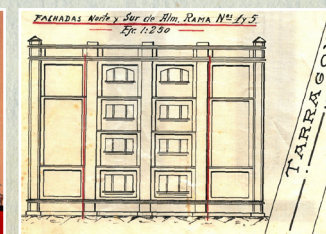 FACHADAS Norte y Sur de Alm. RAMA Nos 1 y 5.
Esc. 1:250
TARRAGO